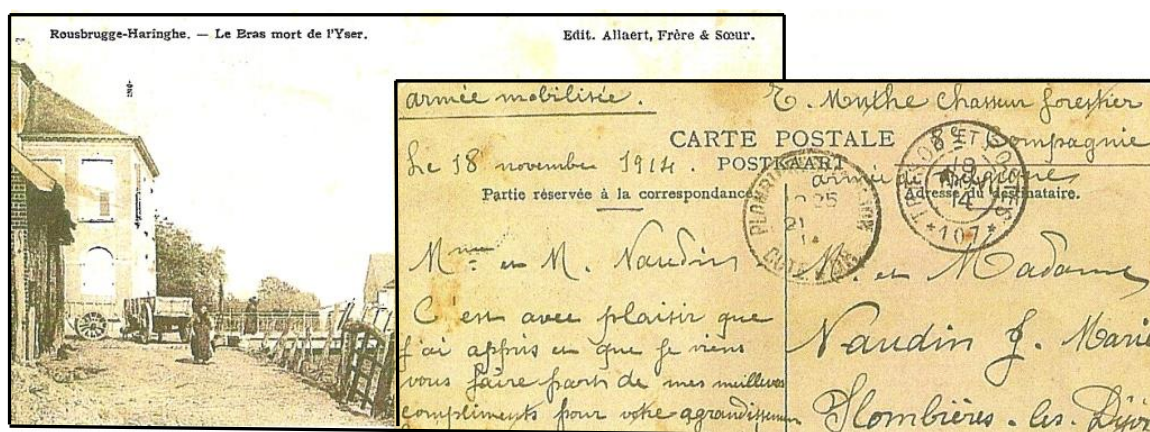 Rousbrugge-Haringhe. — Le Bras mort de l'Yser.
Edit. Allaert, Frère & Sœur.
armée mobilisée.
E. Mythe chasseur forestier
8e Compagnie
armée Belgique
CARTE POSTALE
POSTKAART
Le 18 novembre 1914.
Partie réservée à la correspondance
Adresse du destinataire.
TRESOR ET POSTES
18
14
*107*
PLOMBIERES
COTE D'OR
21
Mme et M. Naudin
C'est avec plaisir que
j'ai appris et que je viens
vous faire part de mes meilleurs
compliments pour votre agrandissemen
M. et Madame
Naudin J. Marie
Plombières-les-Dijon